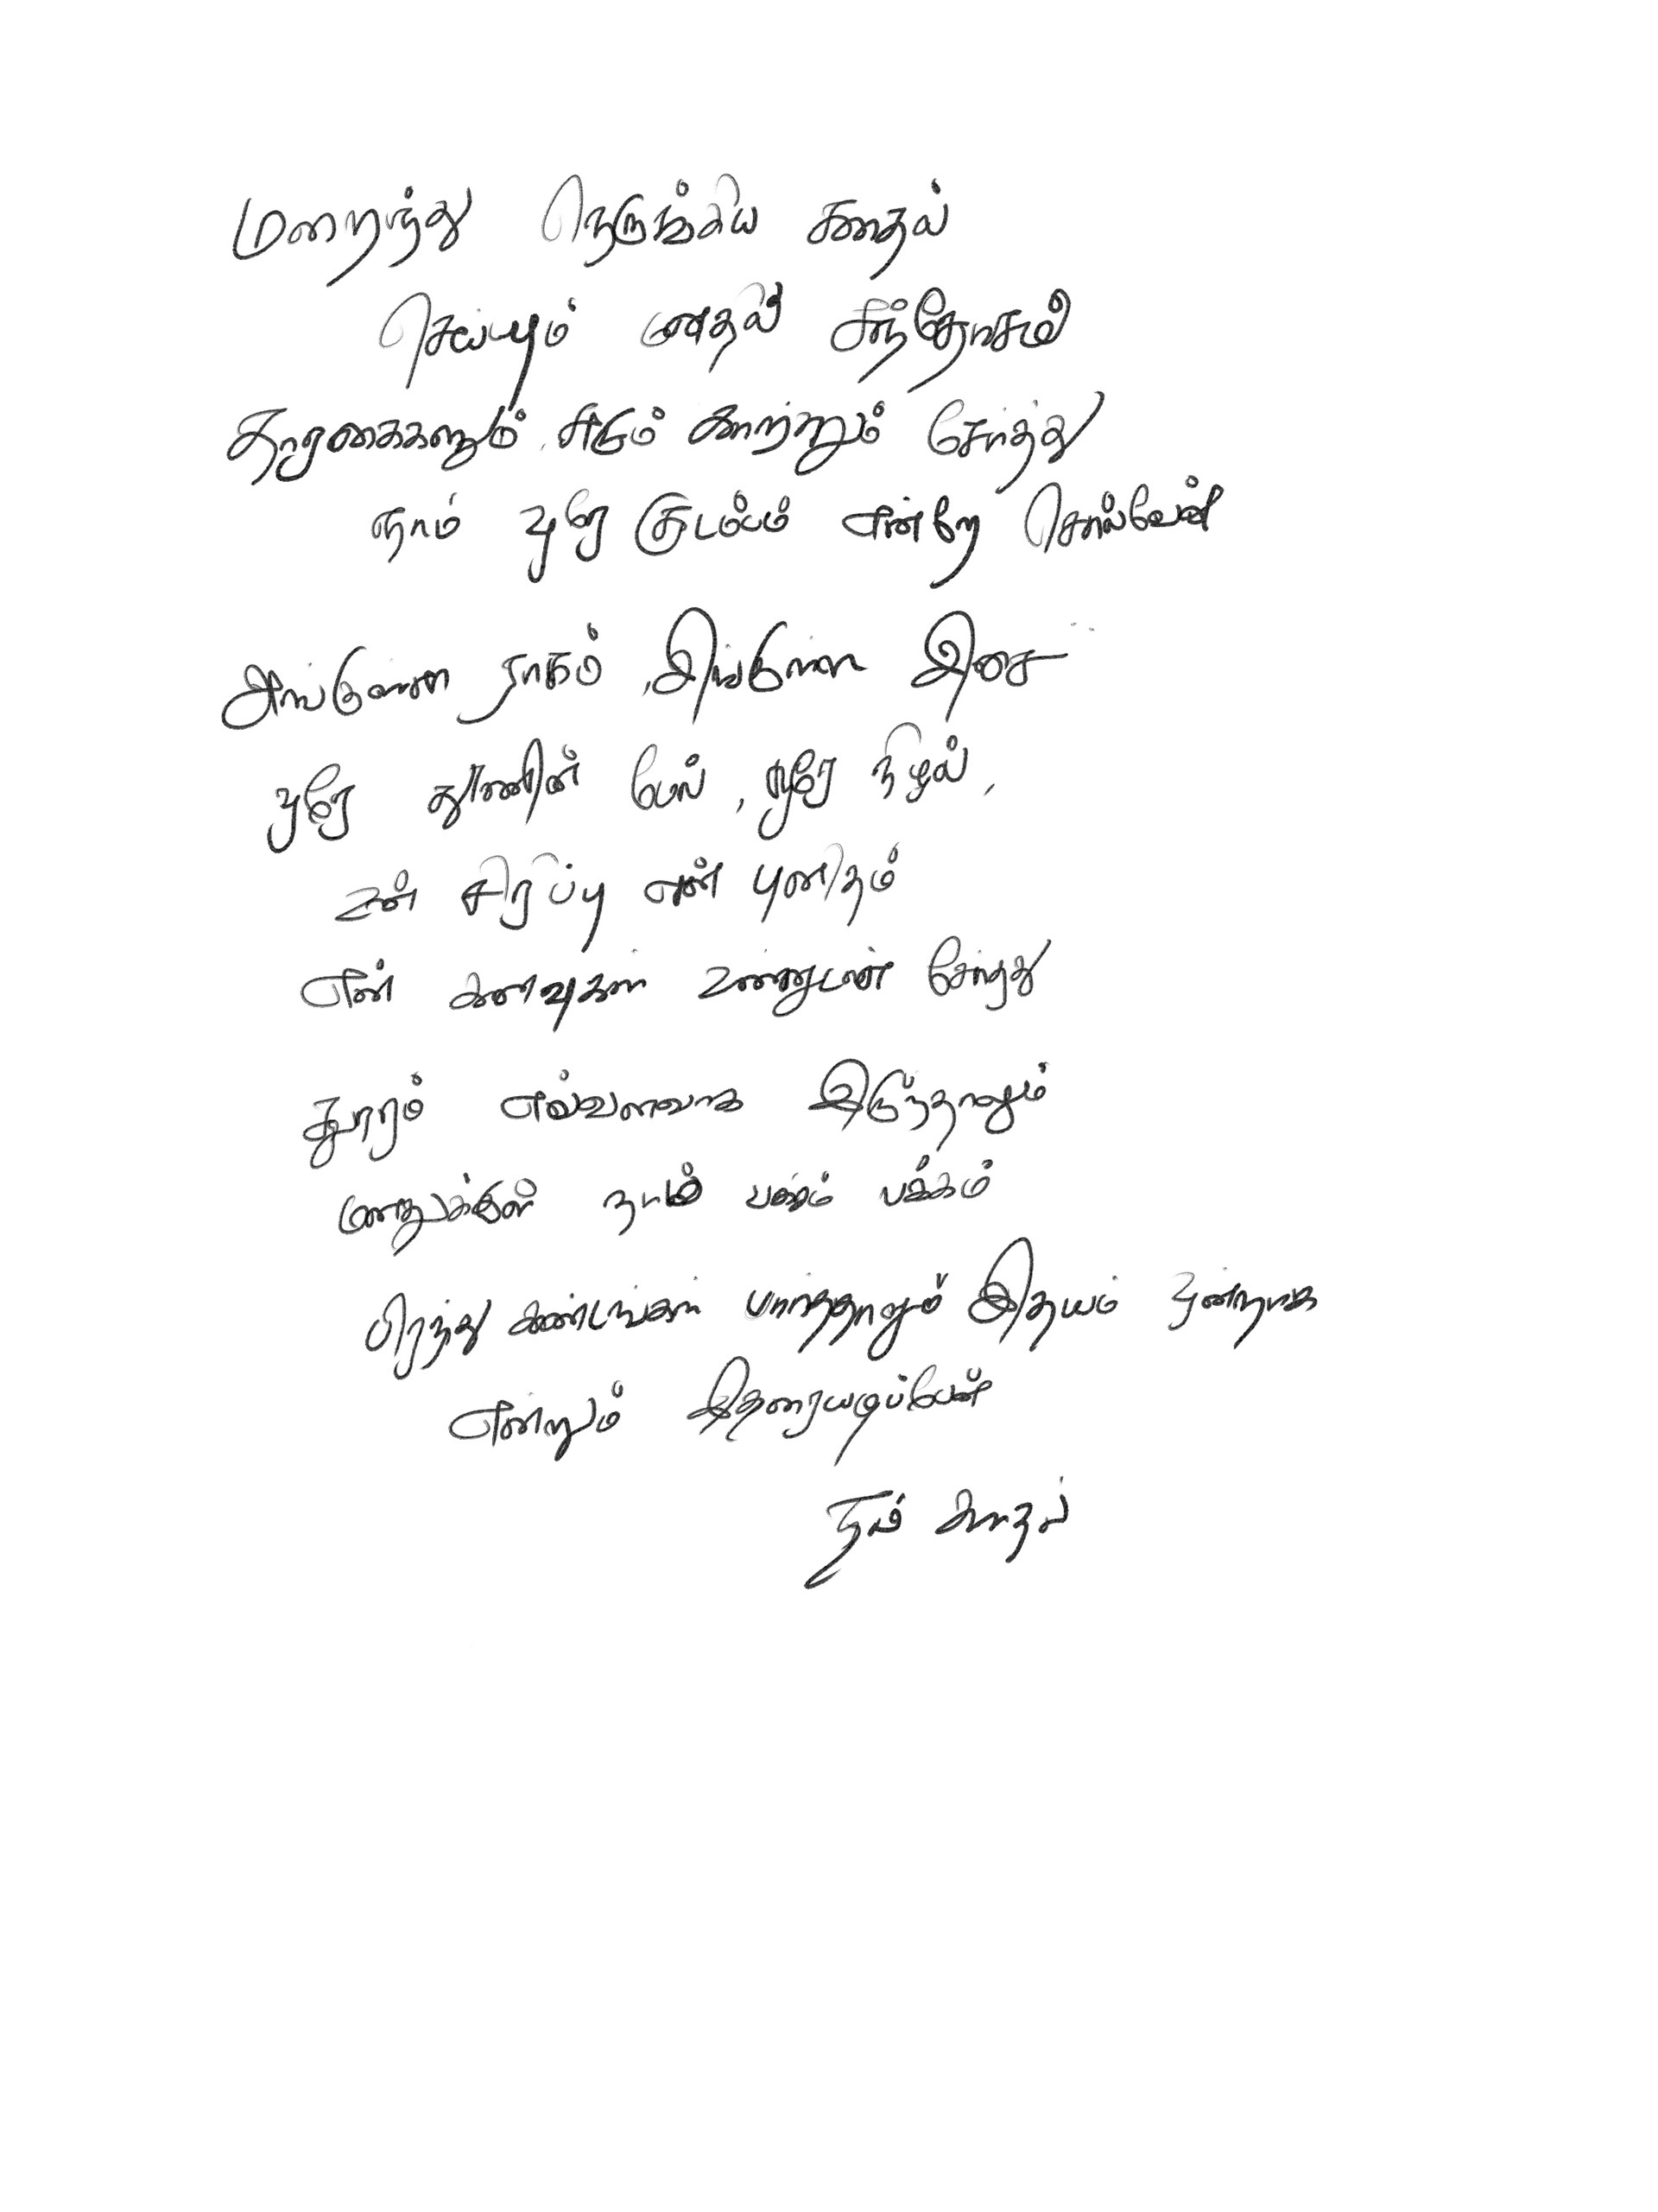 மறைந்து நெருங்கிய காதல்
செய்யும் மனதில் சந்தோசம்
தாரகைகளும், சுடும் காற்றும் சேர்த்து
நாம் ஒரே குடம்பம் என்றே சொல்வேன்
அங்குள்ள நாகம், இங்குள்ள இசை
ஒரே தூணின் மேல், ஒரே நிழல்,
உன் சிரிப்பு என் புனிதம்
என் கனவுகள் உன்னுடன் சேர்ந்து
தூரம் எவ்வளவாக இருந்தாலும்
மனதுக்குள் நாம் பக்கம் பக்கம்
பிரந்து கண்டங்கள் பார்த்தாலும் இதயம் ஒன்றாக
என்றும்
நம் காதல்